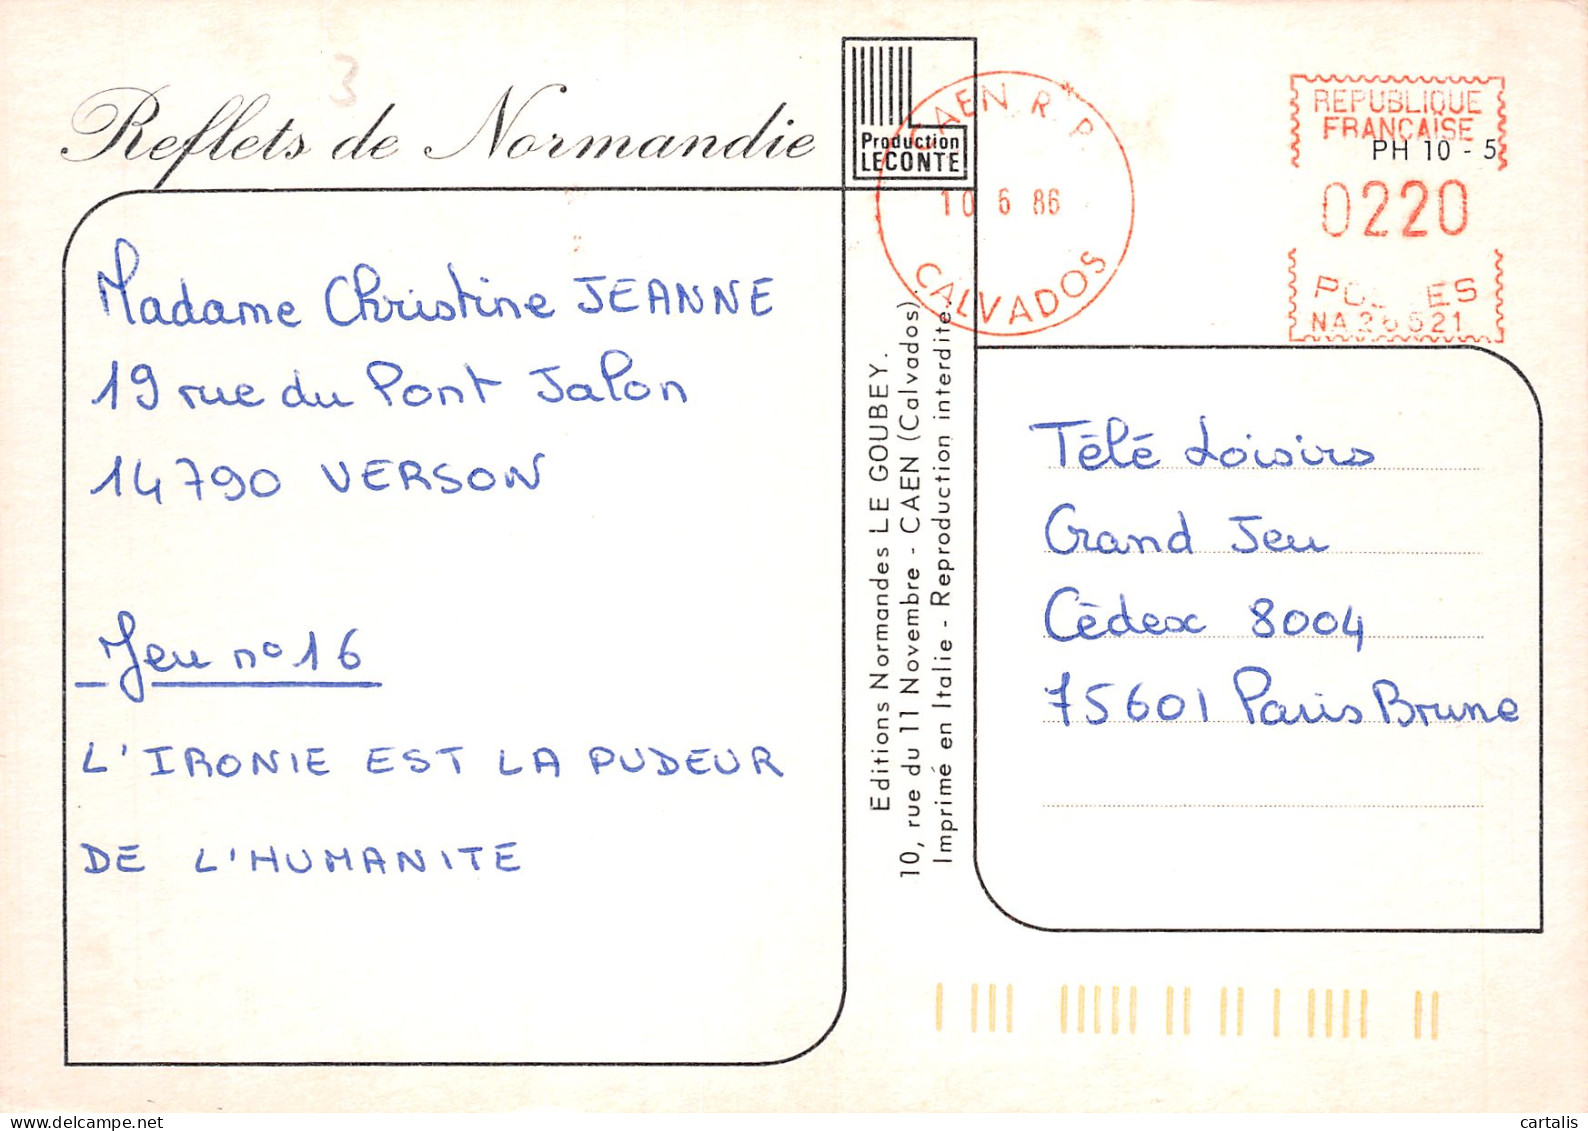 3
Reflets de Normandie
Production
LECONTE
CAEN R.P.
10 6 86
CALVADOS
REPUBLIQUE
FRANÇAISE
PH 10 - 5
0220
NA 26521
Madame Christine JEANNE
19 rue du Pont Jalon
14790 VERSON
Jeu n° 16
L'IRONIE EST LA PUDEUR
DE L'HUMANITE
Editions Normandes LE GOUBEY.
10, rue du 11 Novembre - CAEN (Calvados).
Imprimé en Italie - Reproduction interdite.
Télé Loisirs
Grand Jeu
Cédex 8004
75601 Paris Brune
cartalis
delcampe.net